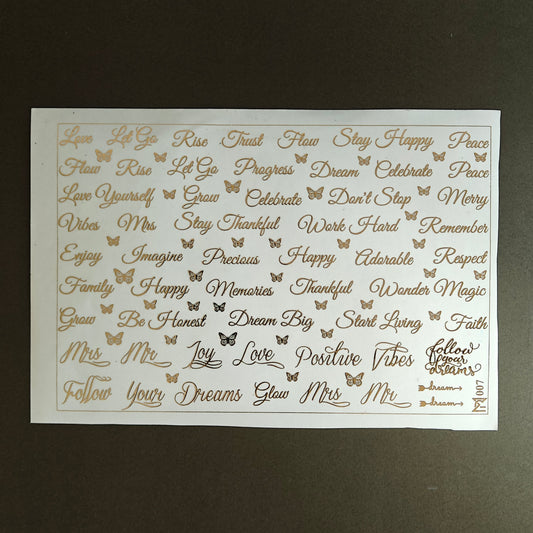 Love Let Go Rise Trust Flow Stay Happy Peace
Flow Rise Let Go Progress Dream Celebrate Peace
Love Yourself Grow Celebrate Don't Stop Merry
Vibes Mrs Stay Thankful Work Hard Remember
Enjoy Imagine Precious Happy Adorable Respect
Family Happy Memories Thankful Wonder Magic
Grow Be Honest Dream Big Start Living Faith
Mrs Mr Joy Love Positive Vibes
follow
your
dreams
Follow Your Dreams Glow Mrs Mr
dream
dream
007